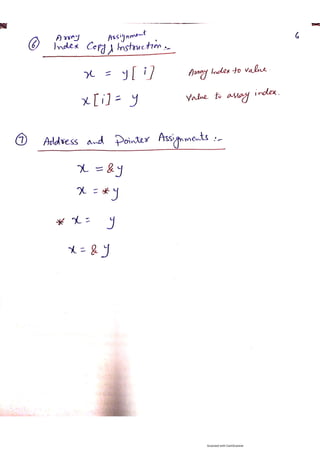 6
⑥ Array Assignment
Index Copy Instruction :-
x = y[i] Array Index to value
x[i] = y Value to array index.
⑦ Address and Pointer Assignments :-
x = &y
x = *y
*x = y
x = &y
Scanned with CamScanner